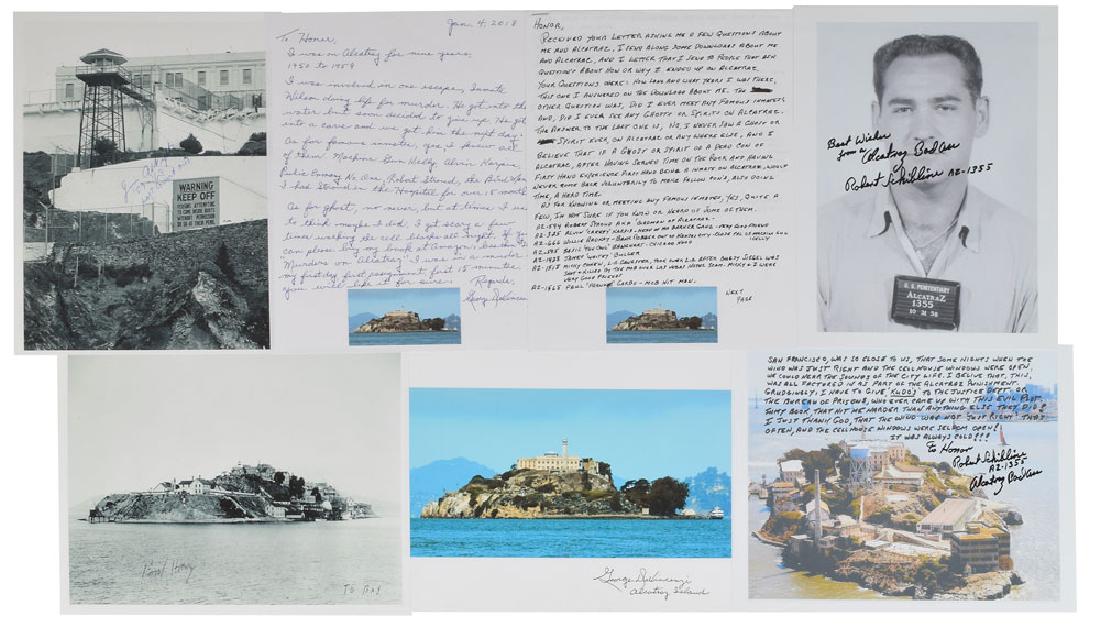 WARNING
KEEP OFF
Jan. 4, 2018
To Honor,
I was on Alcatraz for nine years.
1950 to 1959
I was involved in one escape, Inmate
Wilson doing life for murder. He got into the
water but soon decided to give up. He got
into a cave and we got him the next day.
As for famous inmates, yes I knew all
of them. Machine Gun Kelly, Alvin Karpis,
Public Enemy No. One, Robert Stroud, the Bird
I had Stroud in the Hospital for over 15 month
As for ghost, no never, but at times I use
to think maybe I did, I got scary a few
times walking the cell blocks all night. If you
can please buy my book at Amazon's
Murders on Alcatraz" I was on a murder
my first day first assignment first 15 minutes
you will like it for sure. Regards,
George DeVincenzi
HONOR,
RECEIVED YOUR LETTER ASKING ME A FEW QUESTIONS ABOUT
ME AND ALCATRAZ, I SEND ALONG SOME DOWNLOADS ABOUT ME
AND ALCATRAZ, AND A LETTER THAT I SEND TO PEOPLE THAT ASK
QUESTIONS ABOUT HOW OR WHY I ENDED UP ON ALCATRAZ
YOUR QUESTIONS WERE: HOW LONG AND WHAT YEARS I WAS THERE,
THIS ONE I ANSWERED ON THE DOWNLOAD ABOUT ME. THE
OTHER QUESTION WAS, DID I EVER MEET ANY FAMOUS INMATES,
AND, DID I EVER SEE ANY GHOSTS OR SPIRITS ON ALCATRAZ.
THE ANSWER TO THE LAST ONE IS, NO, I NEVER SAW A GHOST OR
SPIRIT EVER, ON ALCATRAZ OR ANY WHERE ELSE, AND I
BELIEVE THAT IF A GHOST OR SPIRIT OF A DEAD CON OF
ALCATRAZ, AFTER HAVING SERVED TIME ON THE ROCK AND HAVING
FIRST HAND EXPERIENCE FIRST HAND BEING A INMATE ON ALCATRAZ, WOULD
NEVER COME BACK VOLUNTARILY TO
TIME, A HARD TIME.
AS FOR KNOWING OR MEETING ANY FAMOUS INMATES, YES, QUITE A
FEW, I'M NOT SURE IF YOU KNOW OR HEARD OF SOME OF THEM.
AZ-594 ROBERT STROUD AND "BIRDMAN OF ALCATRAZ"
AZ-325 ALVIN "CREEPY" KARPIS - HEAD OF MA BARKER GANG - VERY GOOD FRIEND
CHICAGO HOOD
AZ-1428 JAMES "WHITEY" BULGER
MICKEY COHEN, L.A. GANGSTER, TOOK OVER L.A. AFTER BUGSY SIEGEL WAS
SHOT + KILLED BY THE MOB OVER LAS VEGAS HOTEL SCAM. MICKEY + I WERE
VERY GOOD FRIENDS
CARBO - MOB HIT MAN.
NEXT
PAGE
Best Wishes
from a "Alcatraz Bad Ass"
Robert Schibline AZ-1355
U. S. PENITENTIARY
ALCATRAZ
1355
TO RAY
George DeVincenzi
Alcatraz Island
SAN FRANCISCO, WAS SO CLOSE TO US, THAT SOME NIGHTS WHEN THE
WIND WAS JUST RIGHT AND THE CELLHOUSE WINDOWS WERE OPEN,
WE COULD HEAR THE SOUNDS OF THE CITY LIFE. I BELIVE THAT, THIS,
WAS ALL FACTORED IN AS PART OF THE ALCATRAZ PUNISHMENT.
GRUDGINGLY, I HAVE TO GIVE 'KUDOS' TO THE JUSTICE DEPT. OR
THE BUREAU OF PRISONS, WHO EVER CAME UP WITH THIS EVIL PLOT.
IN MY BOOK, THAT HIT ME HARDER THAN ANYTHING ELSE THEY DID!
I JUST THANK GOD, THAT THE WIND WAS NOT "JUST RIGHT" THAT
OFTEN, AND THE CELLHOUSE WINDOWS WERE SELDOM OPEN!
IT WAS ALWAYS COLD!!!
To Honor
Robert Schibline
AZ-1355
Alcatraz Bad Ass